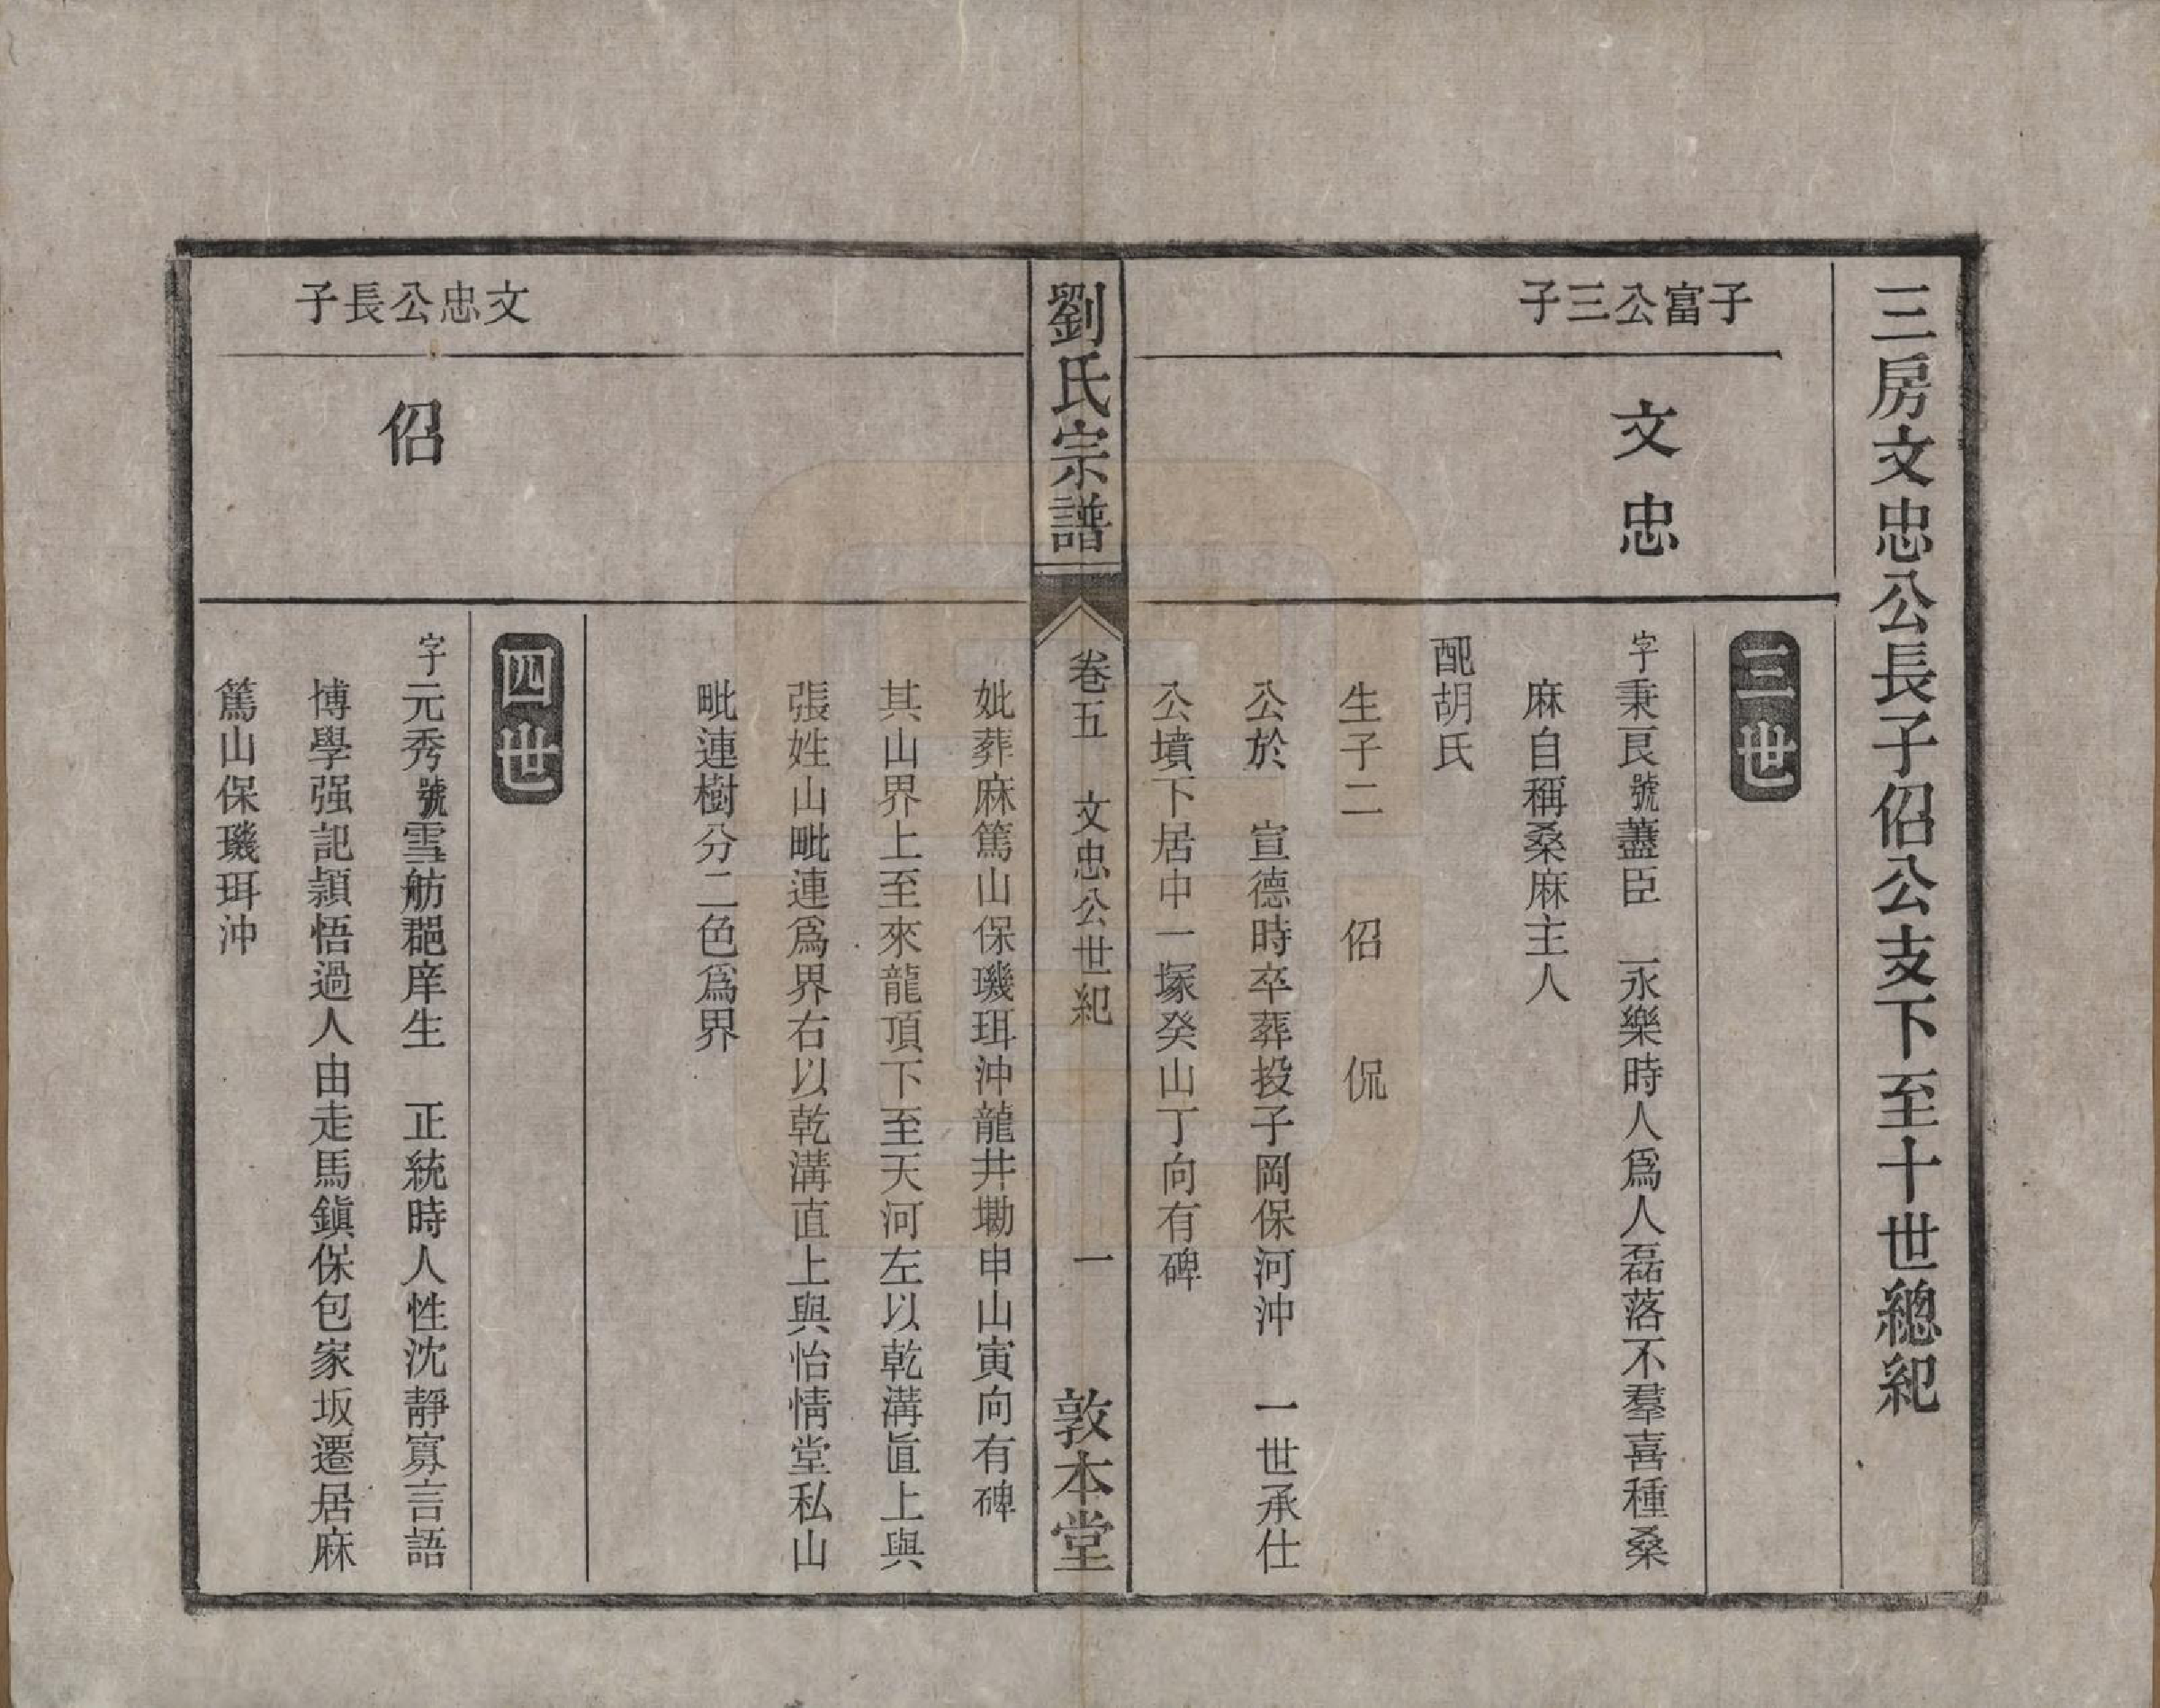 三房文忠公長子佋公支下至十世總紀
三世
子富公三子
文忠
字秉艮號藎臣　永樂時人爲人磊落不羣喜種桑
麻自稱桑麻主人
配胡氏
生子二　佋　侃
公於　宣德時卒葬投子岡保河沖　一世承仕
公墳下居中一塚癸山丁向有碑
劉氏宗譜
卷五　文忠公世紀
一
敦本堂
妣葬麻篤山保璣珥沖龍井墈申山寅向有碑
其山界上至來龍頂下至天河左以乾溝直上與
張姓山毗連爲界右以乾溝直上與怡情堂私山
毗連樹分二色爲界
四世
文忠公長子
佋
字元秀號雪舫郡庠生　正統時人性沈靜寡言語
博學强記穎悟過人由走馬鎭保包家坂遷居麻
篤山保璣珥沖